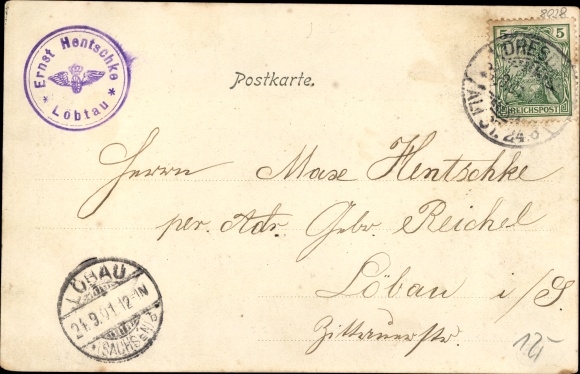 8028
Ernst Hentschke
* Löbtau *
Postkarte.
5 5
REICHSPOST
DRESD
24.9
Herrn Max Hentschke
per. Adr. Gebr. Reichel
Löbau i/S.
Zittauerstr.
LÖBAU
24.9.01.12-1N
(SACHSEN) b